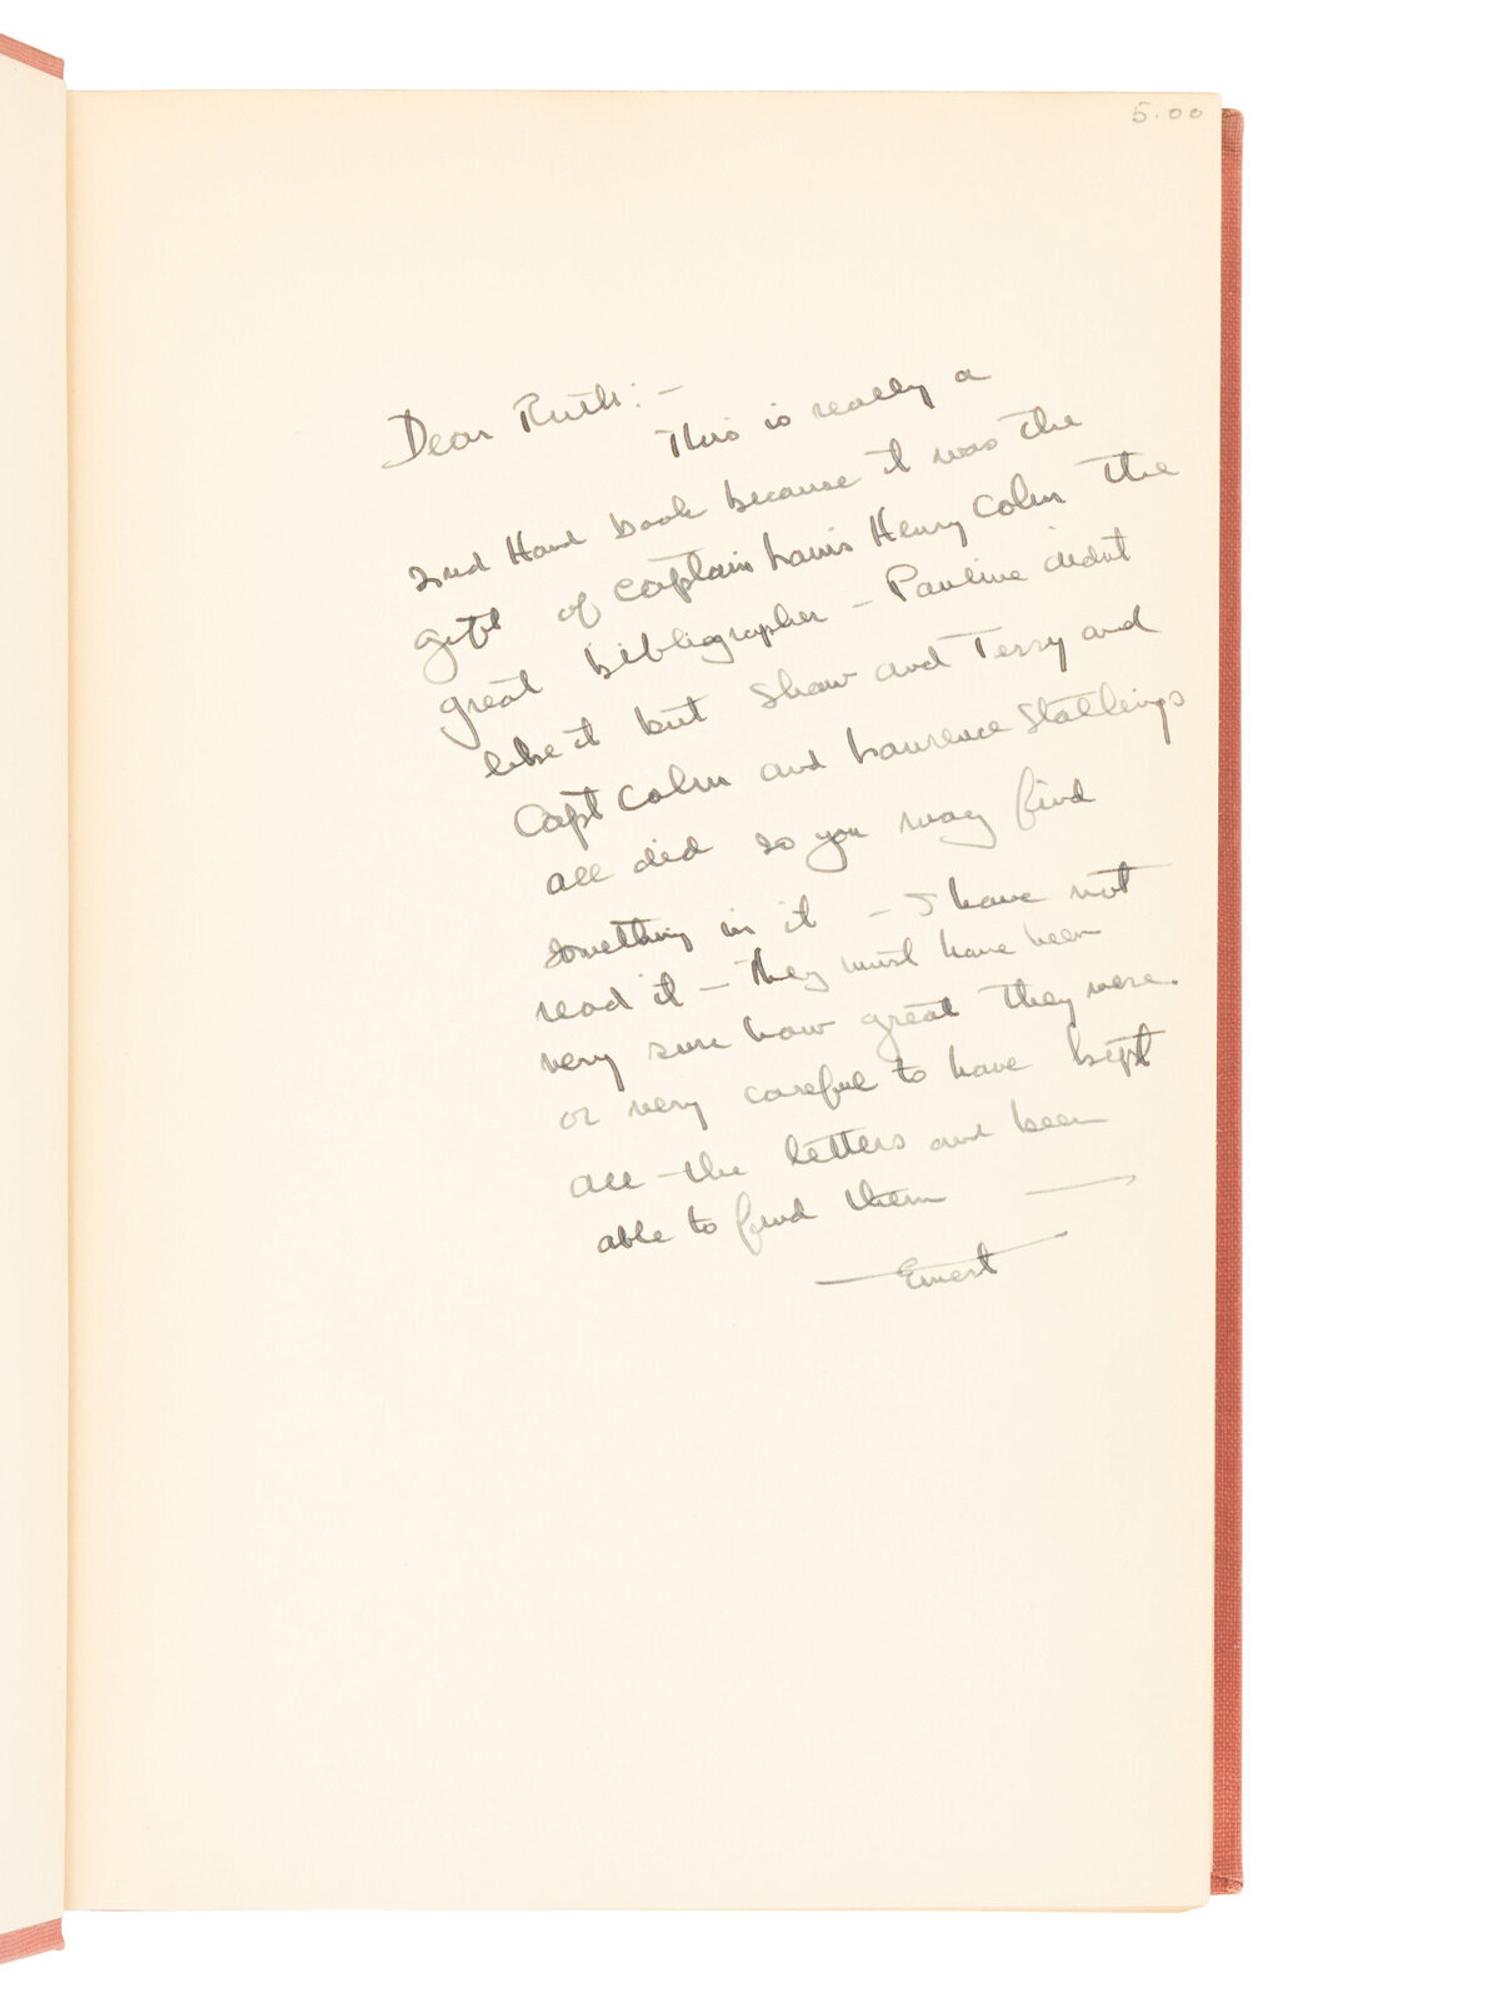 5.00
Dear Ruth:—
This is really a
2nd Hand book because it was the
gift of Captain Louis Henry Cohn the
great bibliographer — Pauline didnt
like it but Shaw and Terry and
Capt Cohn and Laurence Stallings
all did so you may find
something in it — I have not
read it — They must have been
very sure how great they were.
or very careful to have kept
all the letters and been
able to find them —
— Ernest